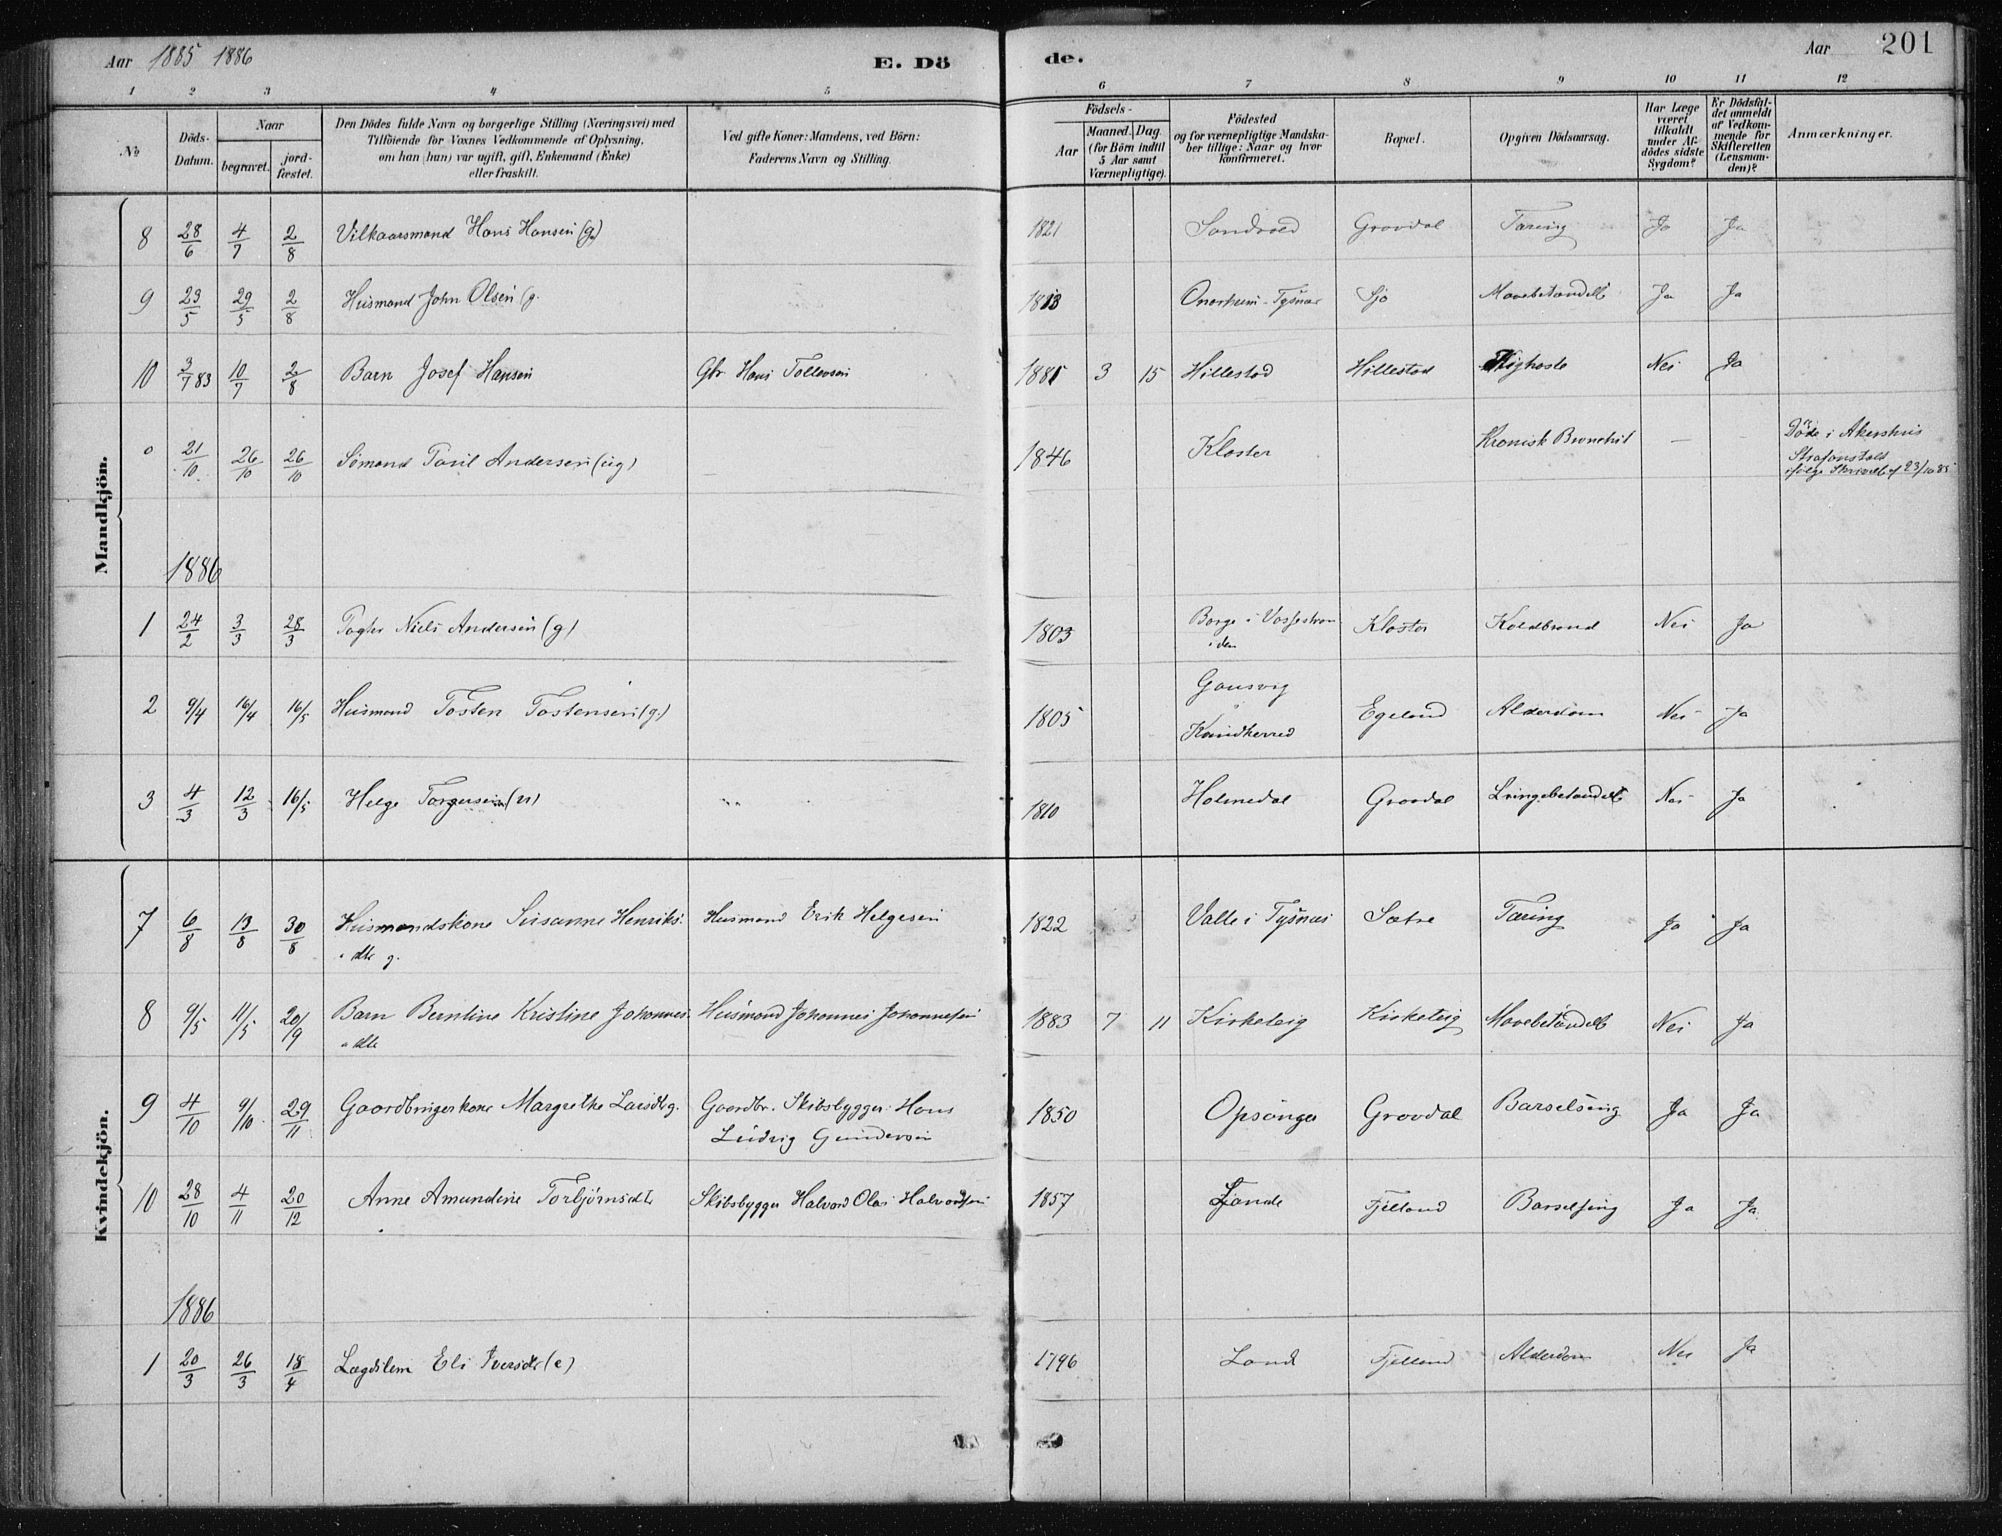 Aar 1885 1886
E. Dö
de.
Aar
201
1 2 3 4 5
6 7 8 9 10 11 12
No
Döds-
Datum.
Naar
begravet.
jord-
fæstet.
Den Dödes fulde Navn og borgerlige Stilling (Næringsvei) med
Tilföiende for Voxnes Vedkommende af Oplysning,
om han (hun) var ugift, gift, Enkemand (Enke)
eller fraskilt.
Ved gifte Koner: Mandens, ved Börn:
Faderens Navn og Stilling.
Födsels-
Aar
Maaned. Dag.
(for Börn indtil
5 Aar samt
Værnepligtige).
Födested
og for værnepligtige Mandska-
ber tillige: Naar og hvor
konfirmeret.
Bopæl.
Opgiven Dödsaarsag.
Har Læge
været
tilkaldt
under Af-
dödes sidste
Sygdom?
Er Dödsfal-
det anmeldt
af Vedkom-
mende for
Skifteretten
(Lensman-
den)?
Anmærkninger.
Mandkjön.
8 28/6 4/7 2/8 Vilkaarsmand Hans Hansen (g) 1821 Sandvold Grovdal Tæring Ja Ja
9 23/5 29/5 2/8 Husmand John Olsen (g. 1813 Onarheim - Tysnæs Sjo Mavebetændelse Ja Ja
10 3/7 83 10/7 2/8 Barn Josef Hansen Gbr Hans Tollevsen 1881 3 15 Hillestad Hillestad Kighoste Nei Ja
0 21/10 26/10 26/10 Sömand Andersen (ug) 1846 Kloster Kronisk Bronchit — — Döde i Akershus
Strafanstalt
ifölge Skrivelse af 23/10 85
1886
1 24/2 3/3 28/3 Niels Andersen (g) 1803 Borge i Vossestran
iden Kloster Koldbrand Nei Ja
2 9/4 16/4 16/5 Husmand Tosten Tostensen (g.) 1805 Gausvig
i
Kvindherred Egeland Alderdom Nei Ja
3 4/3 12/3 16/5 Helge Torgersen 1810 Holmedal Grovdal Lungebetændelse Nei Ja
Kvindekjön.
7 6/8 13/8 30/8 Husmandskone Susanne Henriks-
dtr g. Husmand Erik Helgesen 1822 Valle i Tysnæs Sætre Tæring Ja Ja
8 9/5 11/5 20/9 Barn Berntine Kristine Johannes-
dtr Husmand Johannes Johannesen 1883 7 11 Kirketeig Kirketeig Mavebetændelse Nei Ja
9 4/10 9/10 29/11 Gaardbrugerkone Margrethe Larsdtr g. Gaardbr. Skibsbygger Hans
Ludvig Gundersen 1850 Opsanger Grovdal Barselseng Ja Ja
10 28/10 4/11 20/12 Anne Amundine Torbjörnsdt Skibsbygger Halvard Olai Halvardsen 1857 Lande Fjelland Barselseng Ja Ja
1886
1 20/3 26/3 18/4 Lægdslem Eli Iversdtr (e) 1796 Lande Fjelland Alderdom Nei Ja